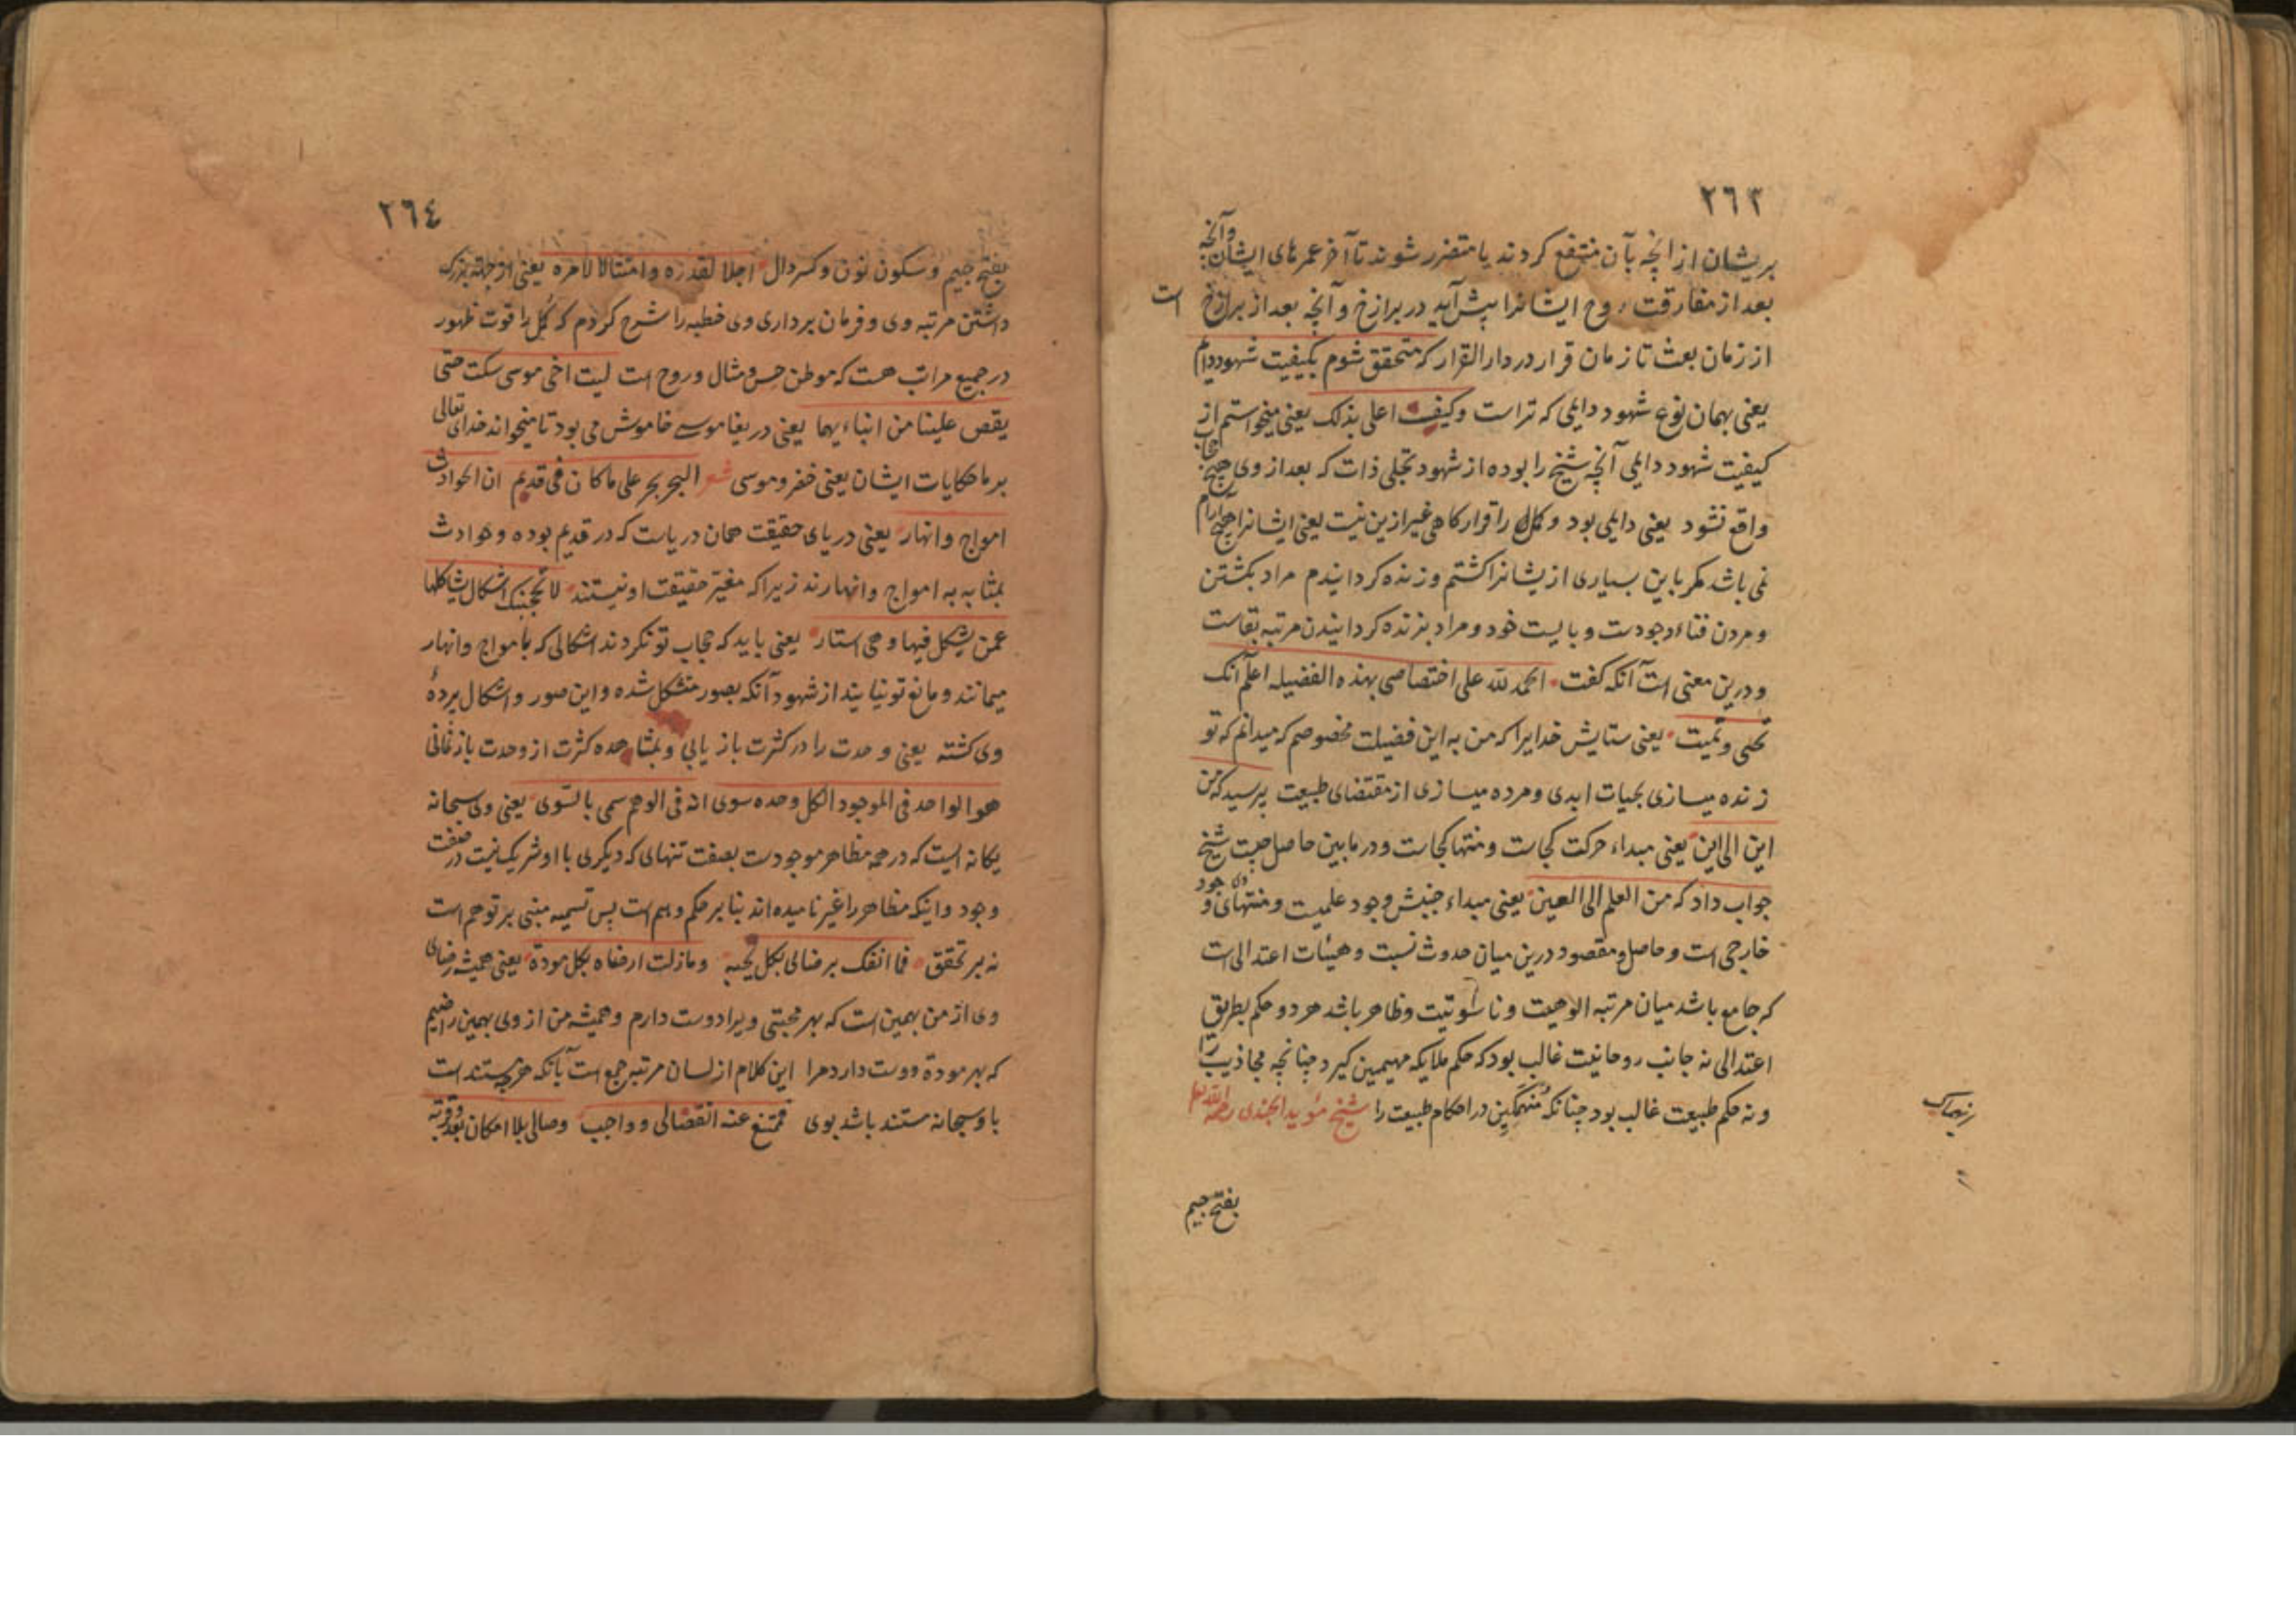 ٢٦٣
بریشان از آنچه بآن منتفع کردند یا متضرر شوند تا آخر عمرهای ایشان وآنچه
بعد از مفارقت روح ایشانرا پیش آید در برازخ و آنچه بعد از برازخ است
از زمان بعث تا زمان قرار در دار القرار که متحقق شوم بکیفیت شهود دایم
یعنی بهمان نوع شهود دایلی که تراست وکیف اعلی بذلک یعنی میخواستم از
کیفیت شهود دایلی آنچه شیخ را بوده از شهود تجلی ذات که بعد از وی هیچ حجاب
واقع نشود یعنی دایلی بود و کمل را قرارکاهی غیر ازین نیست یعنی ایشانرا هیچ آرام
نمی باشد مکر باین بسیاری از یشانرا کشتم و زنده کردانیدم مراد بکشتن
و مردن فناء وجودست و بایست خود و مراد بزنده کردانیدن مرتبه بقاست
و درین معنی است آنکه کفت الحمد لله علی اختصاصی بهذه الفضیله اعلم انک
تحیی و تمیت یعنی ستایش خدایرا که من به این فضیلت مخصوصم که میدانم که تو
زنده میسازی بحیات ابدی و مرده میسازی از مقتضای طبیعت پرسید که من
این الی این یعنی مبداء حرکت کجاست و منتها کجاست و در مابین حاصل چیست شیخ
جواب داد که من العلم الی العین یعنی مبداء جنبش وجود علمیست و منتهای او وجود
خارجی است و حاصل و مقصود درین میان حدوث نسبت و هیئات اعتدالی است
که جامع باشد میان مرتبه الوهیت و ناسوتیت و ظاهر باشد هر دو حکم بطریق
اعتدالی نه جانب روحانیت غالب بود که حکم ملایکه مهیمین کیرد چنانچه مجاذیب را
و نه حکم طبیعت غالب بود چنانکه منهمکین در احکام طبیعت را شیخ مؤید الجندی رحمه الله
بفتح جیم
٢٦٤
بفتح جیم و سکون نون و کسر دال اجلالا لقدره و امتثالا لامره یعنی از جهته بزرک
داشتن مرتبه وی و فرمان برداری وی خطبه را شرح کردم که کمل را قوت ظهور
در جمیع مراتب هست که موطن حس و مثال و روح است لیت اخی موسی سکت حتی
یقص علینا من انباءیهما یعنی دریغا موسی خاموش می بود تا میخواند خدای تعالی
بر ما حکایات ایشان یعنی خضر و موسی شعر البحر بحر علی ما کان فی قدم ان الحوادث
امواج و انهار یعنی دریای حقیقت همان دریاست که در قدیم بوده و حوادث
بمثابه به امواج و انهارند زیرا که مغیر حقیقت او نیستند لا تحجبنک اشکال یشاکلها
عمن یشکل فیها و هی استار یعنی باید که حجاب تو نکردند اشکالی که بامواج و انهار
میمانند و مانع تو نیایند از شهود آنکه بصور متشکل شده و این صور و اشکال پردهٔ
وی کشته یعنی وحدت را در کثرت باز یابی و بمشاهده کثرت از وحدت باز نمانی
هو الواحد فی الموجود الکل وحده سوی انه فی الوهم سمی بالسوی یعنی وی سبحانه
یکانه ایست که در همه مظاهر موجودست بصفت تنهای که دیکری با او شریک نیست در صفت
وجود و اینکه مظاهر را غیر نامیده اند بنا بر حکم وهم است پس تسمیه مبنی بر توهم است
نه بر تحقق فما انفک یرضالی بکل محبه و مازلت ارضاه بکل مودة یعنی همیشه رضای
وی از من بهمین است که بهر محبتی ویرا دوست دارم و همیشه من از وی بهمین راضیم
که بهر مودة دوست دارد مرا این کلام از لسان مرتبه جمع است بآنکه هر چه مستند است
باو سبحانه مستند باشد بوی فممتنع عنه انفصالی و واجب وصالی بلا امکان بعد و قربة